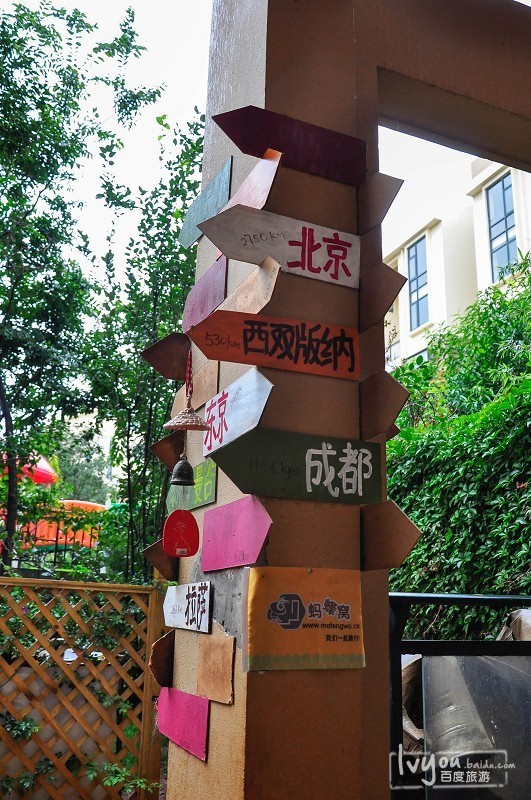 2750km 北京
530km 西双版纳
东京
成都
拉萨
蚂蜂窝
www.mafengwo.cn
我们一起旅行
lvyou.baidu.com
百度旅游